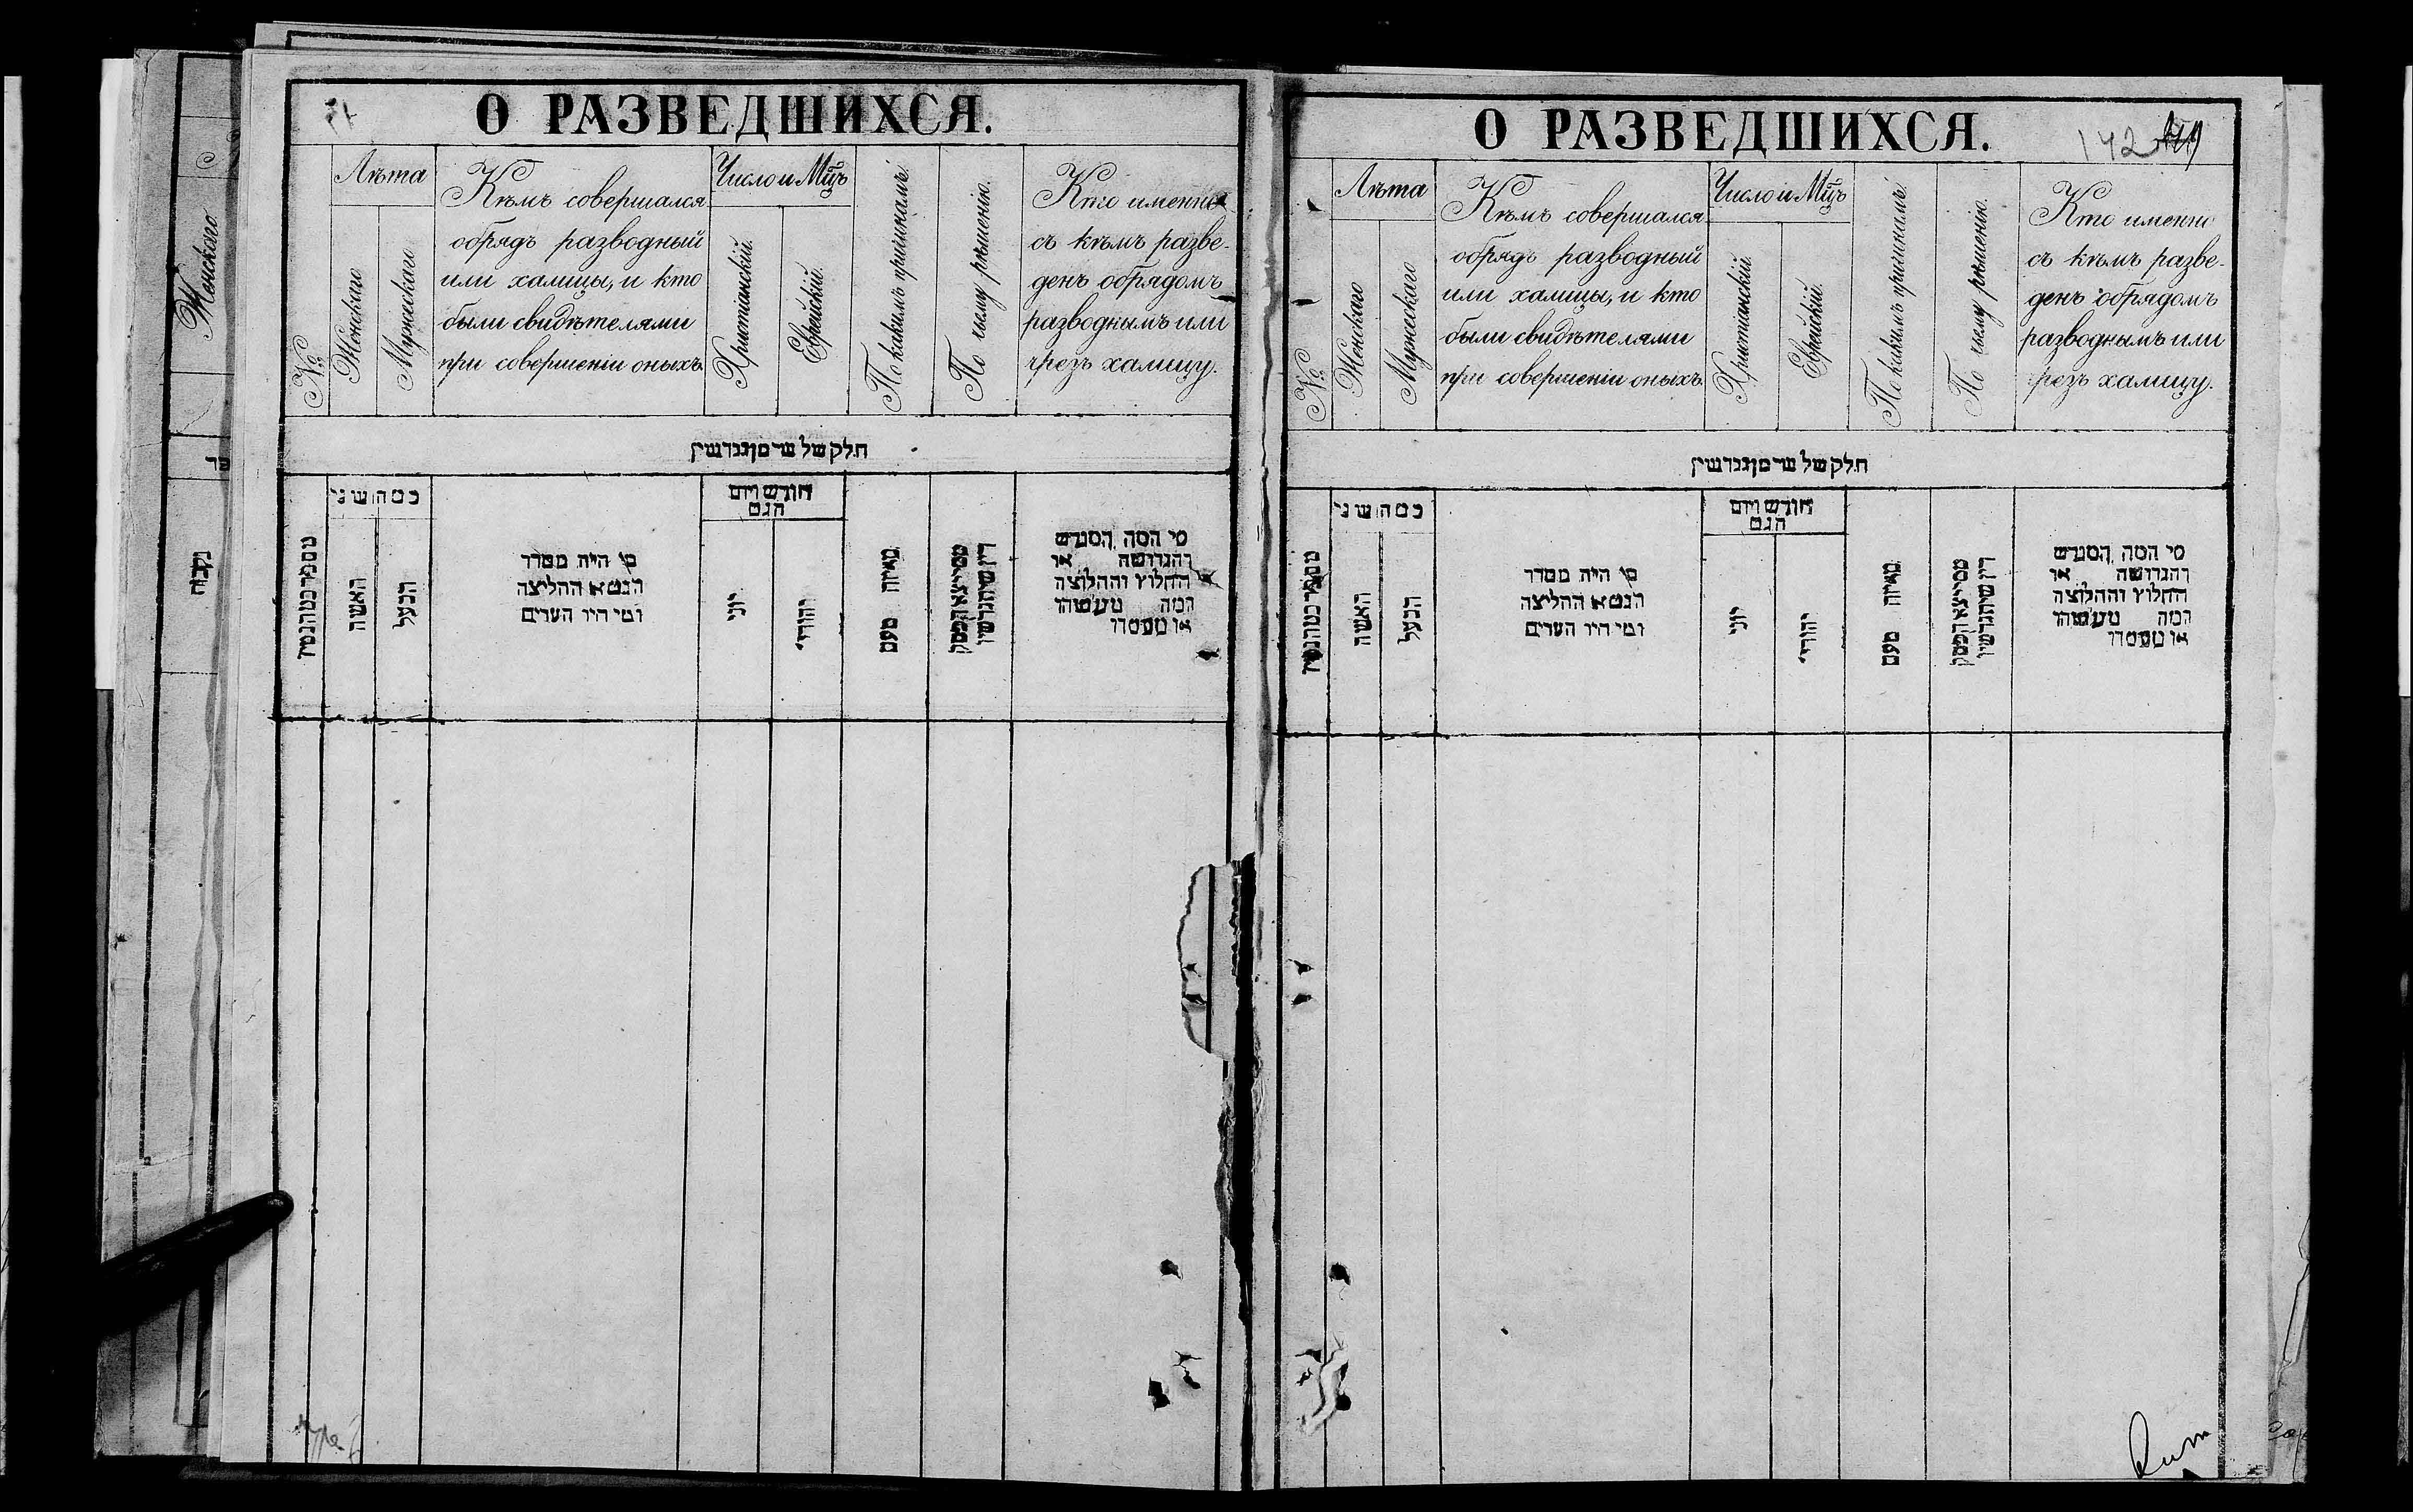 Женскаго
נקבה
О РАЗВЕДШИХСЯ.
№
Лѣта
Женскаго
Мужескаго
Кѣмъ совершался
обрядъ разводный
или халицы, и кто
были свидѣтелями
при совершеніи оныхъ.
Число и Мцъ
Христіанскій.
Еврейскій.
По какимъ причинамъ.
По чьему рѣшенію.
Кто именно
съ кѣмъ разве-
денъ обрядомъ
разводнымъ или
чрезъ халицу.
חלק של
כמה שני
האשה
הבעל
מי היה מסדר
הגט או החליצה
ומי היו העדים
חודש ויום
הגט
יוני
יהודי
מאיזה טעם
מי המה המגרש
והגרושה או
החלוץ והחלוצה
О РАЗВЕДШИХСЯ.
142
№
Лѣта
Женскаго
Мужескаго
Кѣмъ совершался
обрядъ разводный
или халицы, и кто
были свидѣтелями
при совершеніи оныхъ.
Число и Мцъ
Христіанскій.
Еврейскій.
По какимъ причинамъ.
По чьему рѣшенію.
Кто именно
съ кѣмъ разве-
денъ обрядомъ
разводнымъ или
чрезъ халицу.
חלק של
כמה שני
האשה
הבעל
מי היה מסדר
הגט או החליצה
ומי היו העדים
חודש ויום
הגט
יוני
יהודי
מאיזה טעם
מי המה המגרש
והגרושה או
החלוץ והחלוצה